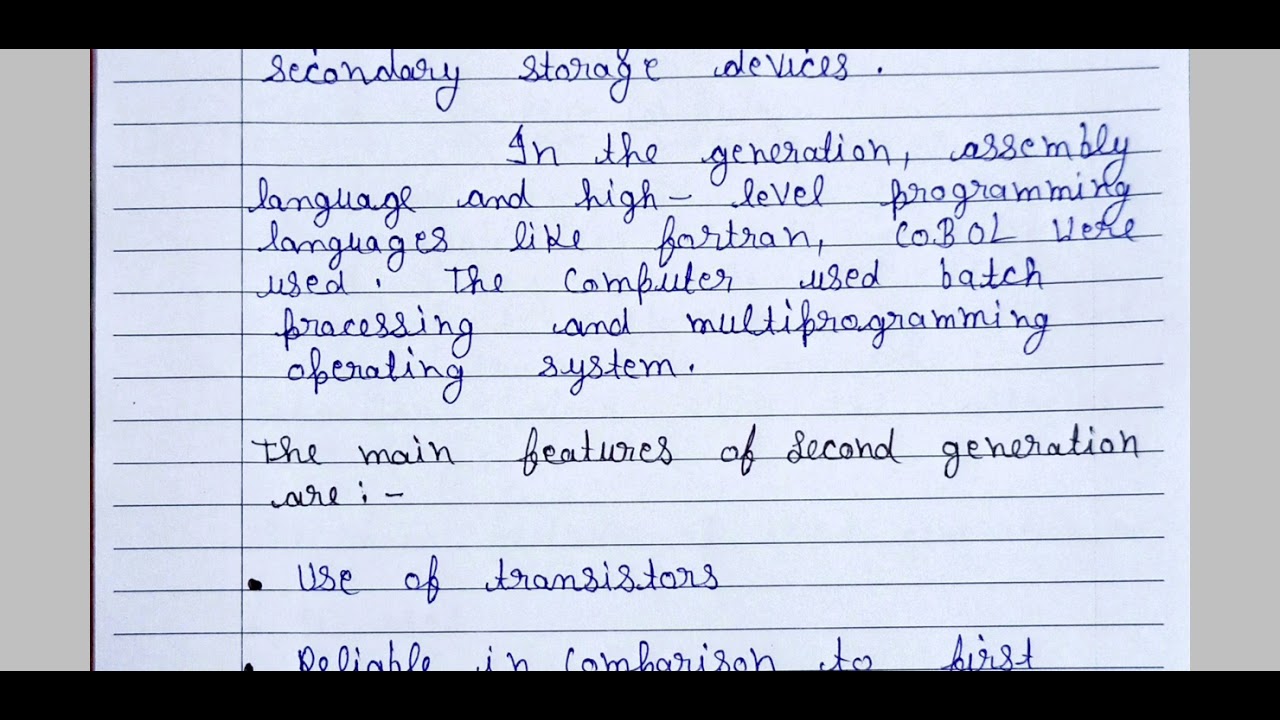 secondary storage devices.
In the generation, assembly
language and high-level programming
languages like fortran, COBOL were
used. The computer used batch
processing and multiprogramming
operating system.
The main features of second generation
are:-
• Use of transistors
• Reliable in comparison to first